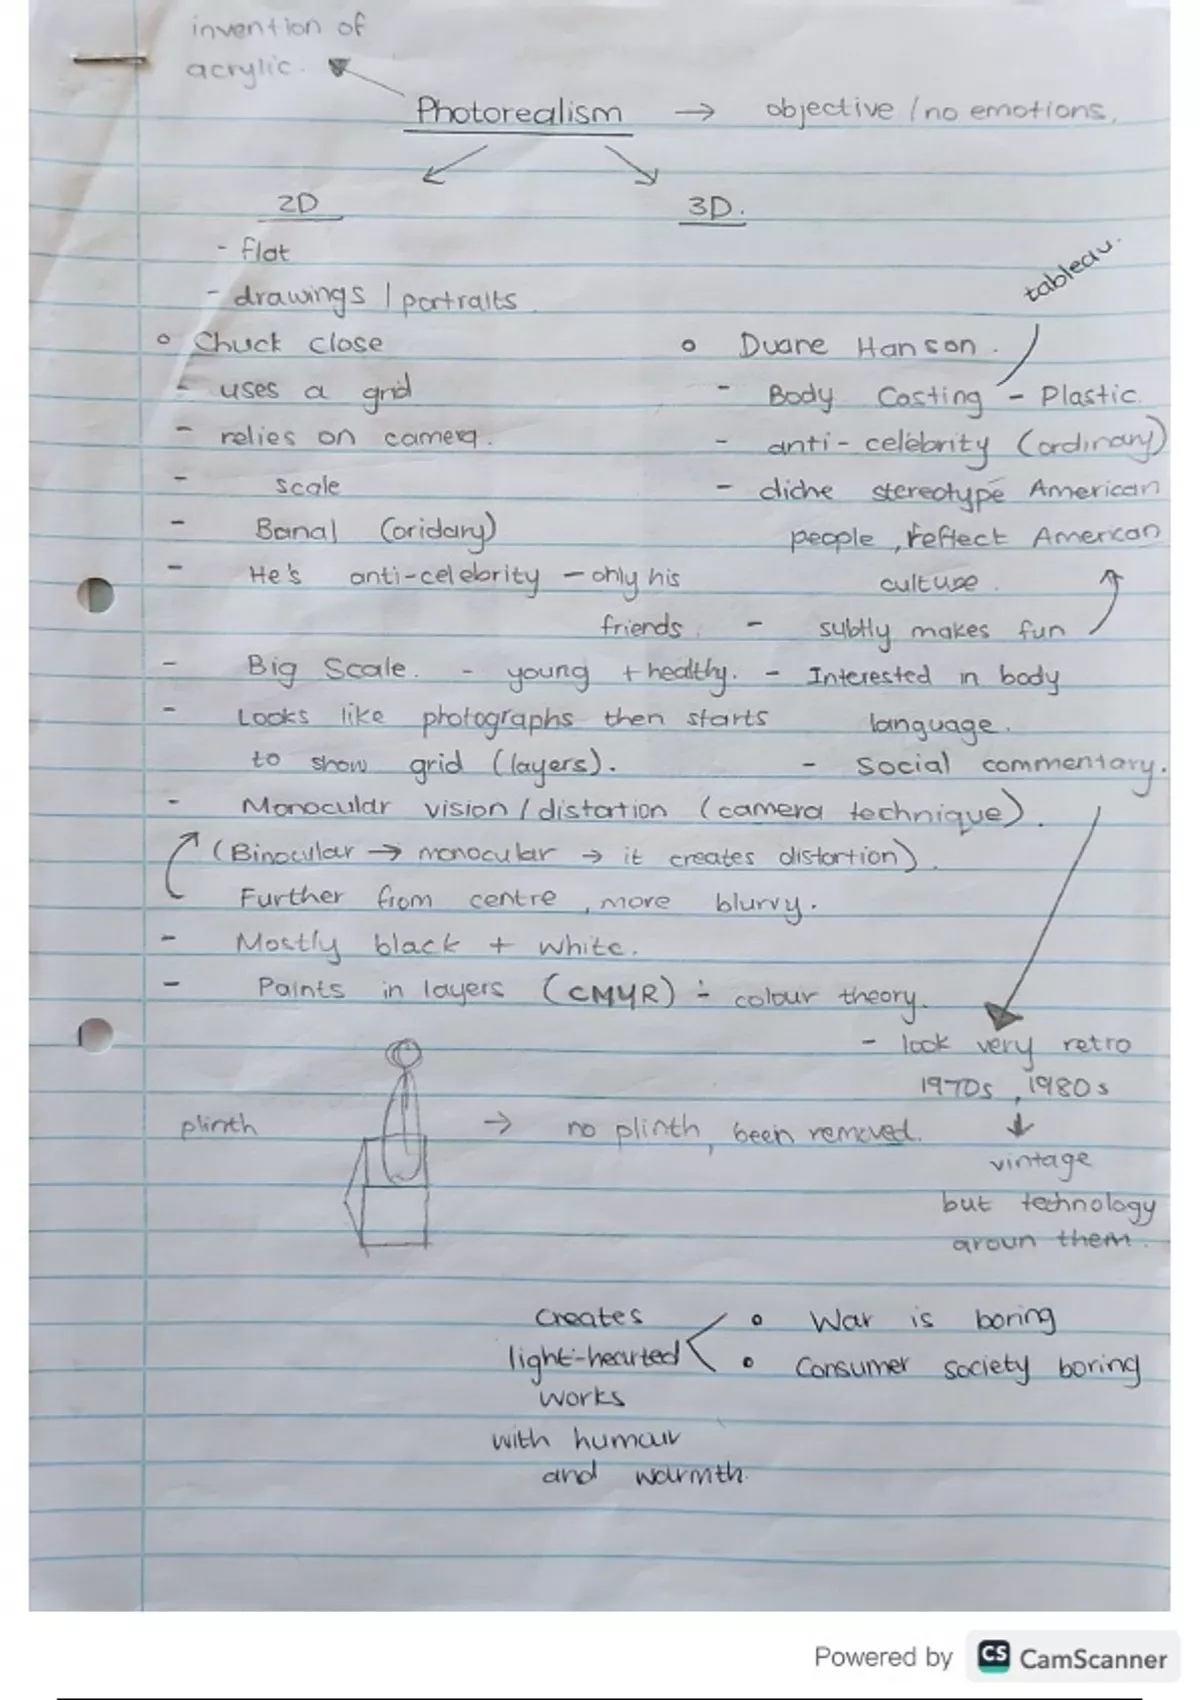 invention of
acrylic.
Photorealism → objective / no emotions.
2D
- flat
- drawings / portraits
o Chuck close
- uses a grid
- relies on camera.
- scale
- Banal (oridary)
- He's anti-celebrity - only his
friends.
- Big Scale. - young + healthy.
- Looks like photographs then starts
to show grid (layers).
- Monocular vision / distortion (camera technique).
(Binocular → monocular → it creates distortion).
Further from centre, more blurry.
- Mostly black + white.
- Paints in layers (CMYR) - colour theory.
3D.
tableau.
o Duane Hanson.
- Body Casting - Plastic.
- anti-celebrity (ordinary)
- cliche stereotype American
people, reflect American
culture.
- subtly makes fun
- Interested in body
language.
- Social commentary.
- look very retro
1970s, 1980s
vintage
but technology
aroun them.
plinth → no plinth, been removed.
Creates
light-hearted
works
with humour
and warmth.
o War is boring
o Consumer society boring
Powered by CS CamScanner